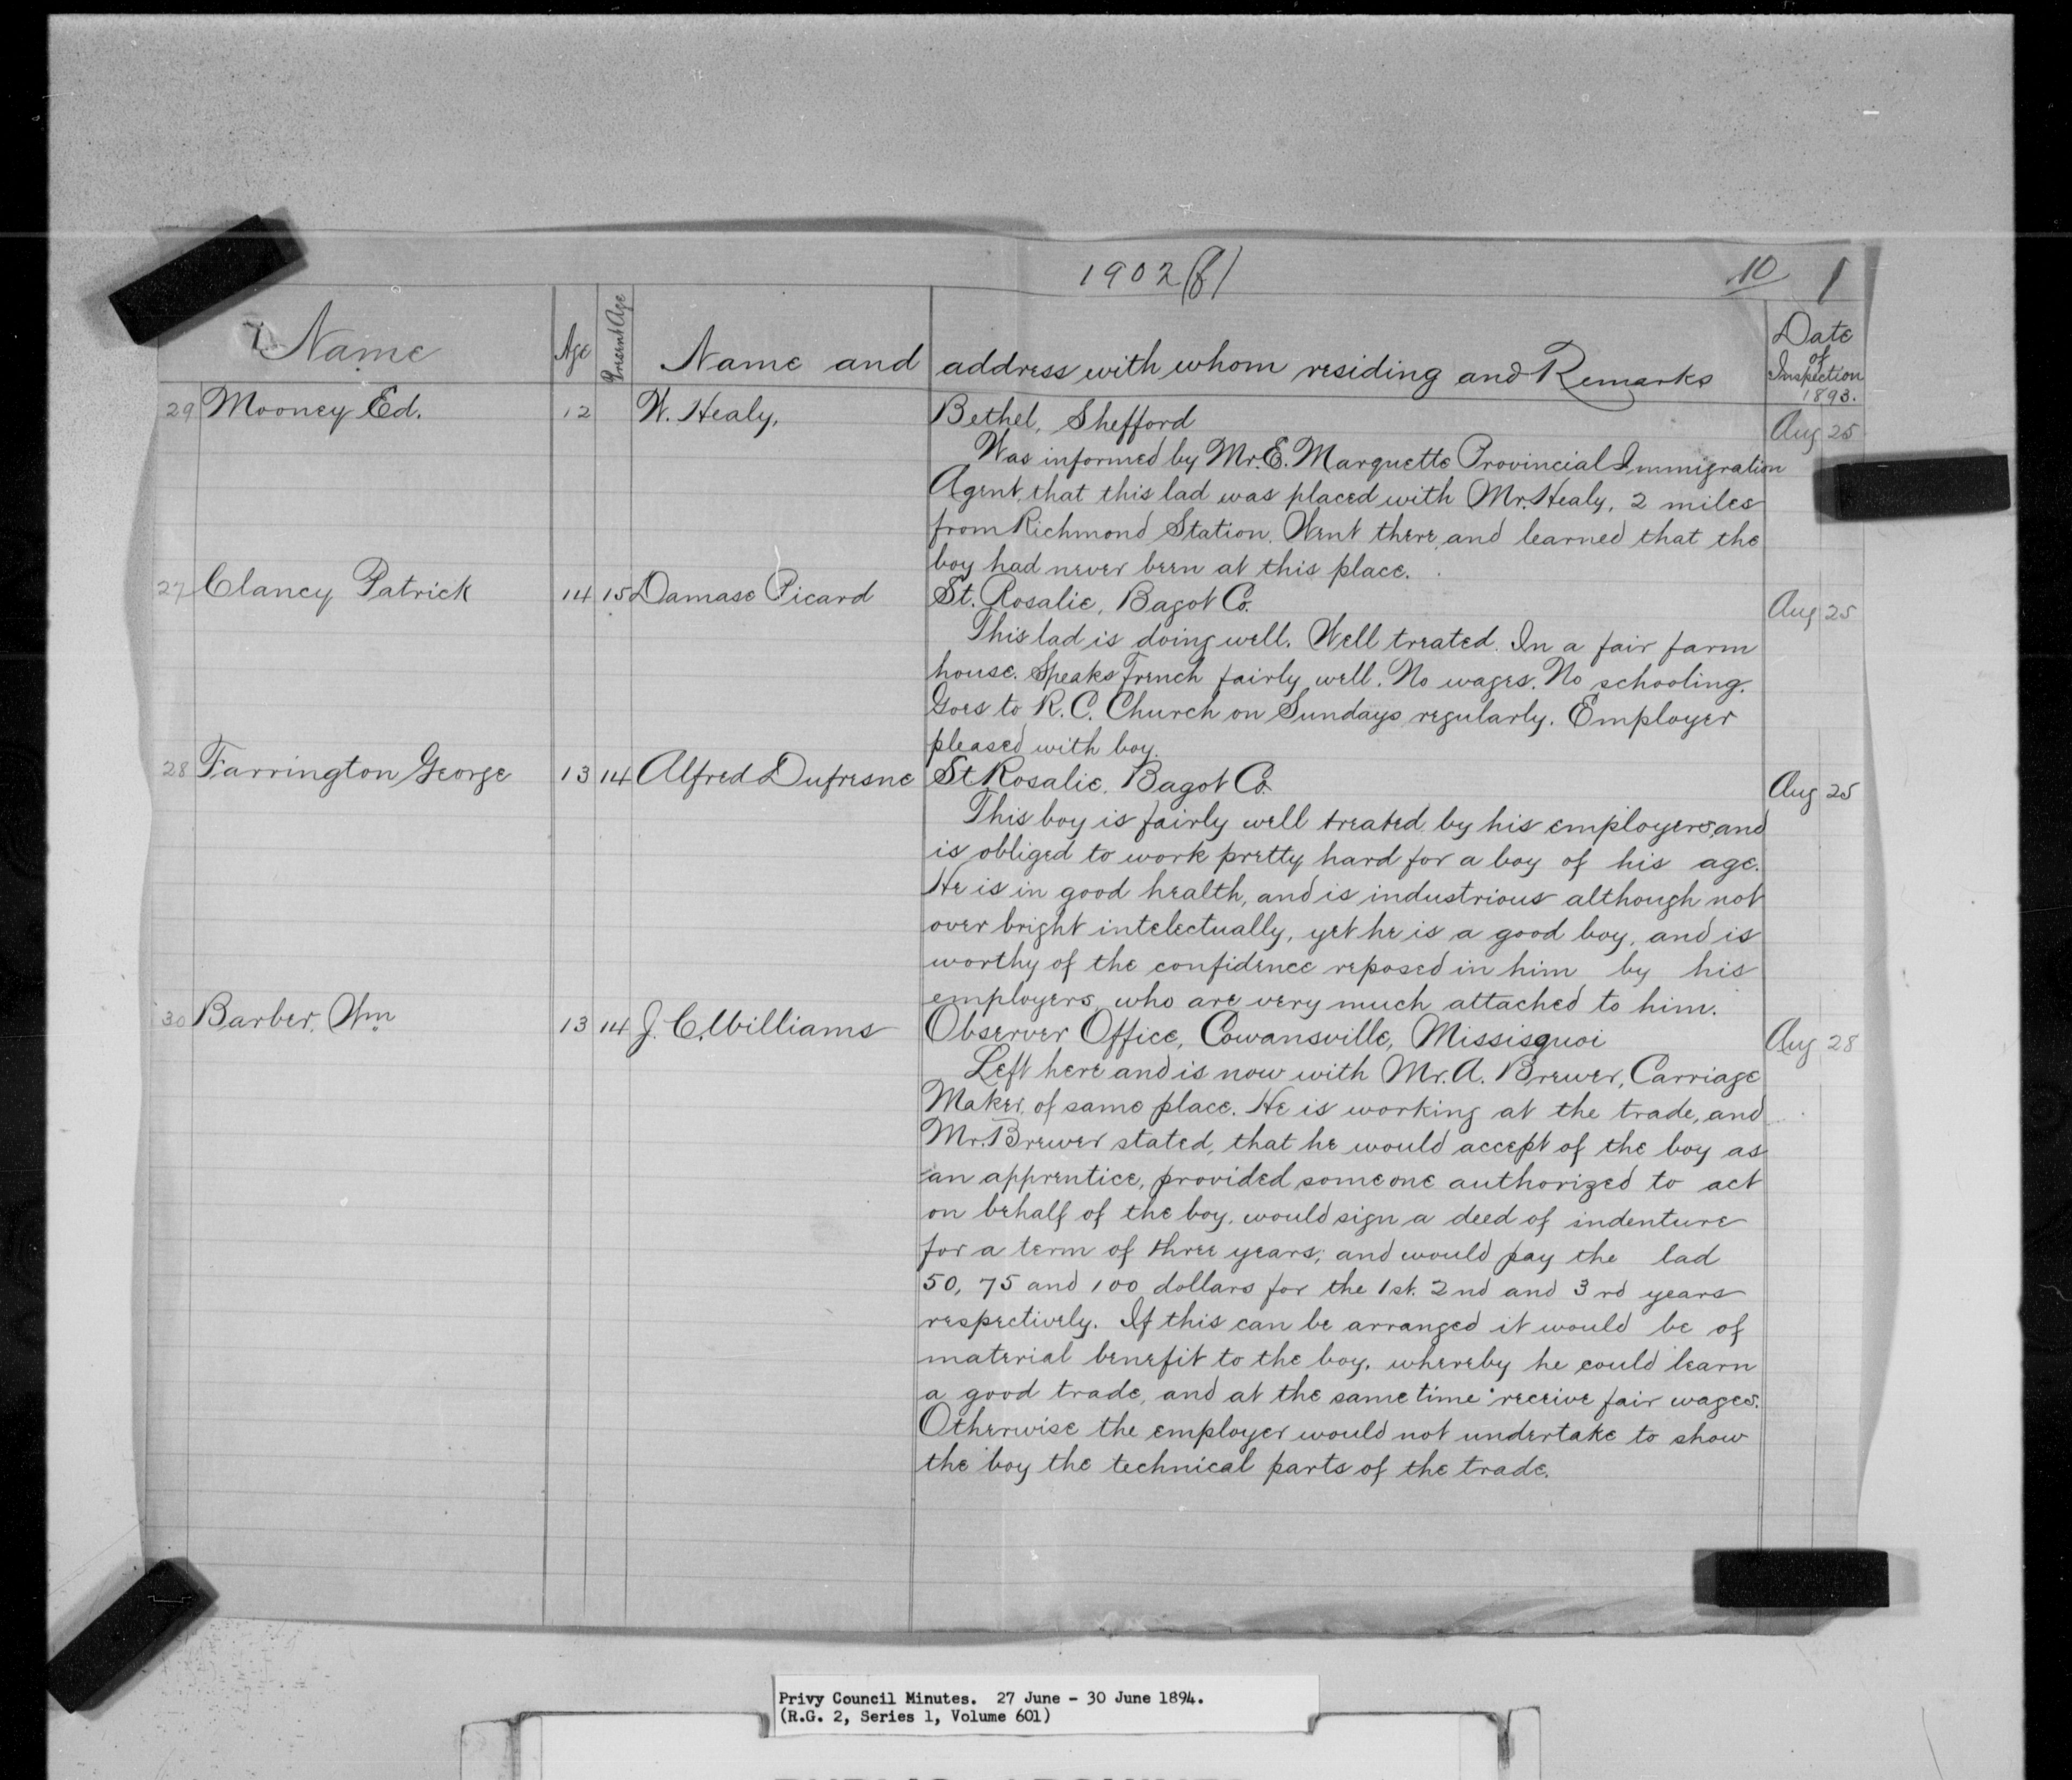 1902(f) 10 1
Name Age Present Age Name and address with whom residing and Remarks Date of Inspection 1893.
29 Mooney Ed. 12 W. Healy, Bethel, Shefford Aug 25
Was informed by Mr. E. Marquette Provincial Immigration
Agent, that this lad was placed with Mr. Healy, 2 miles
from Richmond Station. Went there, and learned that the
boy had never been at this place.
27 Clancy Patrick 14 15 Damase Picard St. Rosalie, Bagot Co. Aug 25
This lad is doing well. Well treated. In a fair farm
house. Speaks French fairly well. No wages. No schooling.
Goes to R. C. Church on Sundays regularly. Employer
pleased with boy.
28 Farrington George 13 14 Alfred Dufresne St Rosalie, Bagot Co. Aug 25
This boy is fairly well treated by his employers, and
is obliged to work pretty hard for a boy of his age.
He is in good health, and is industrious although not
over bright intelectually, yet he is a good boy, and is
worthy of the confidence reposed in him by his
employers, who are very much attached to him.
30 Barber, Wm 13 14 J. C. Williams Observer Office, Cowansville, Missisquoi Aug 28
Left here and is now with Mr. A. Brewer, Carriage
Maker, of same place. He is working at the trade, and
Mr. Brewer stated, that he would accept of the boy as
an apprentice, provided someone authorized to act
on behalf of the boy, would sign a deed of indenture
for a term of three years; and would pay the lad
50, 75 and 100 dollars for the 1st. 2nd and 3rd years
respectively. If this can be arranged it would be of
material benefit to the boy, whereby he could learn
a good trade, and at the same time receive fair wages.
Otherwise the employer would not undertake to show
the boy the technical parts of the trade.
Privy Council Minutes. 27 June - 30 June 1894.
(R.G. 2, Series 1, Volume 601)